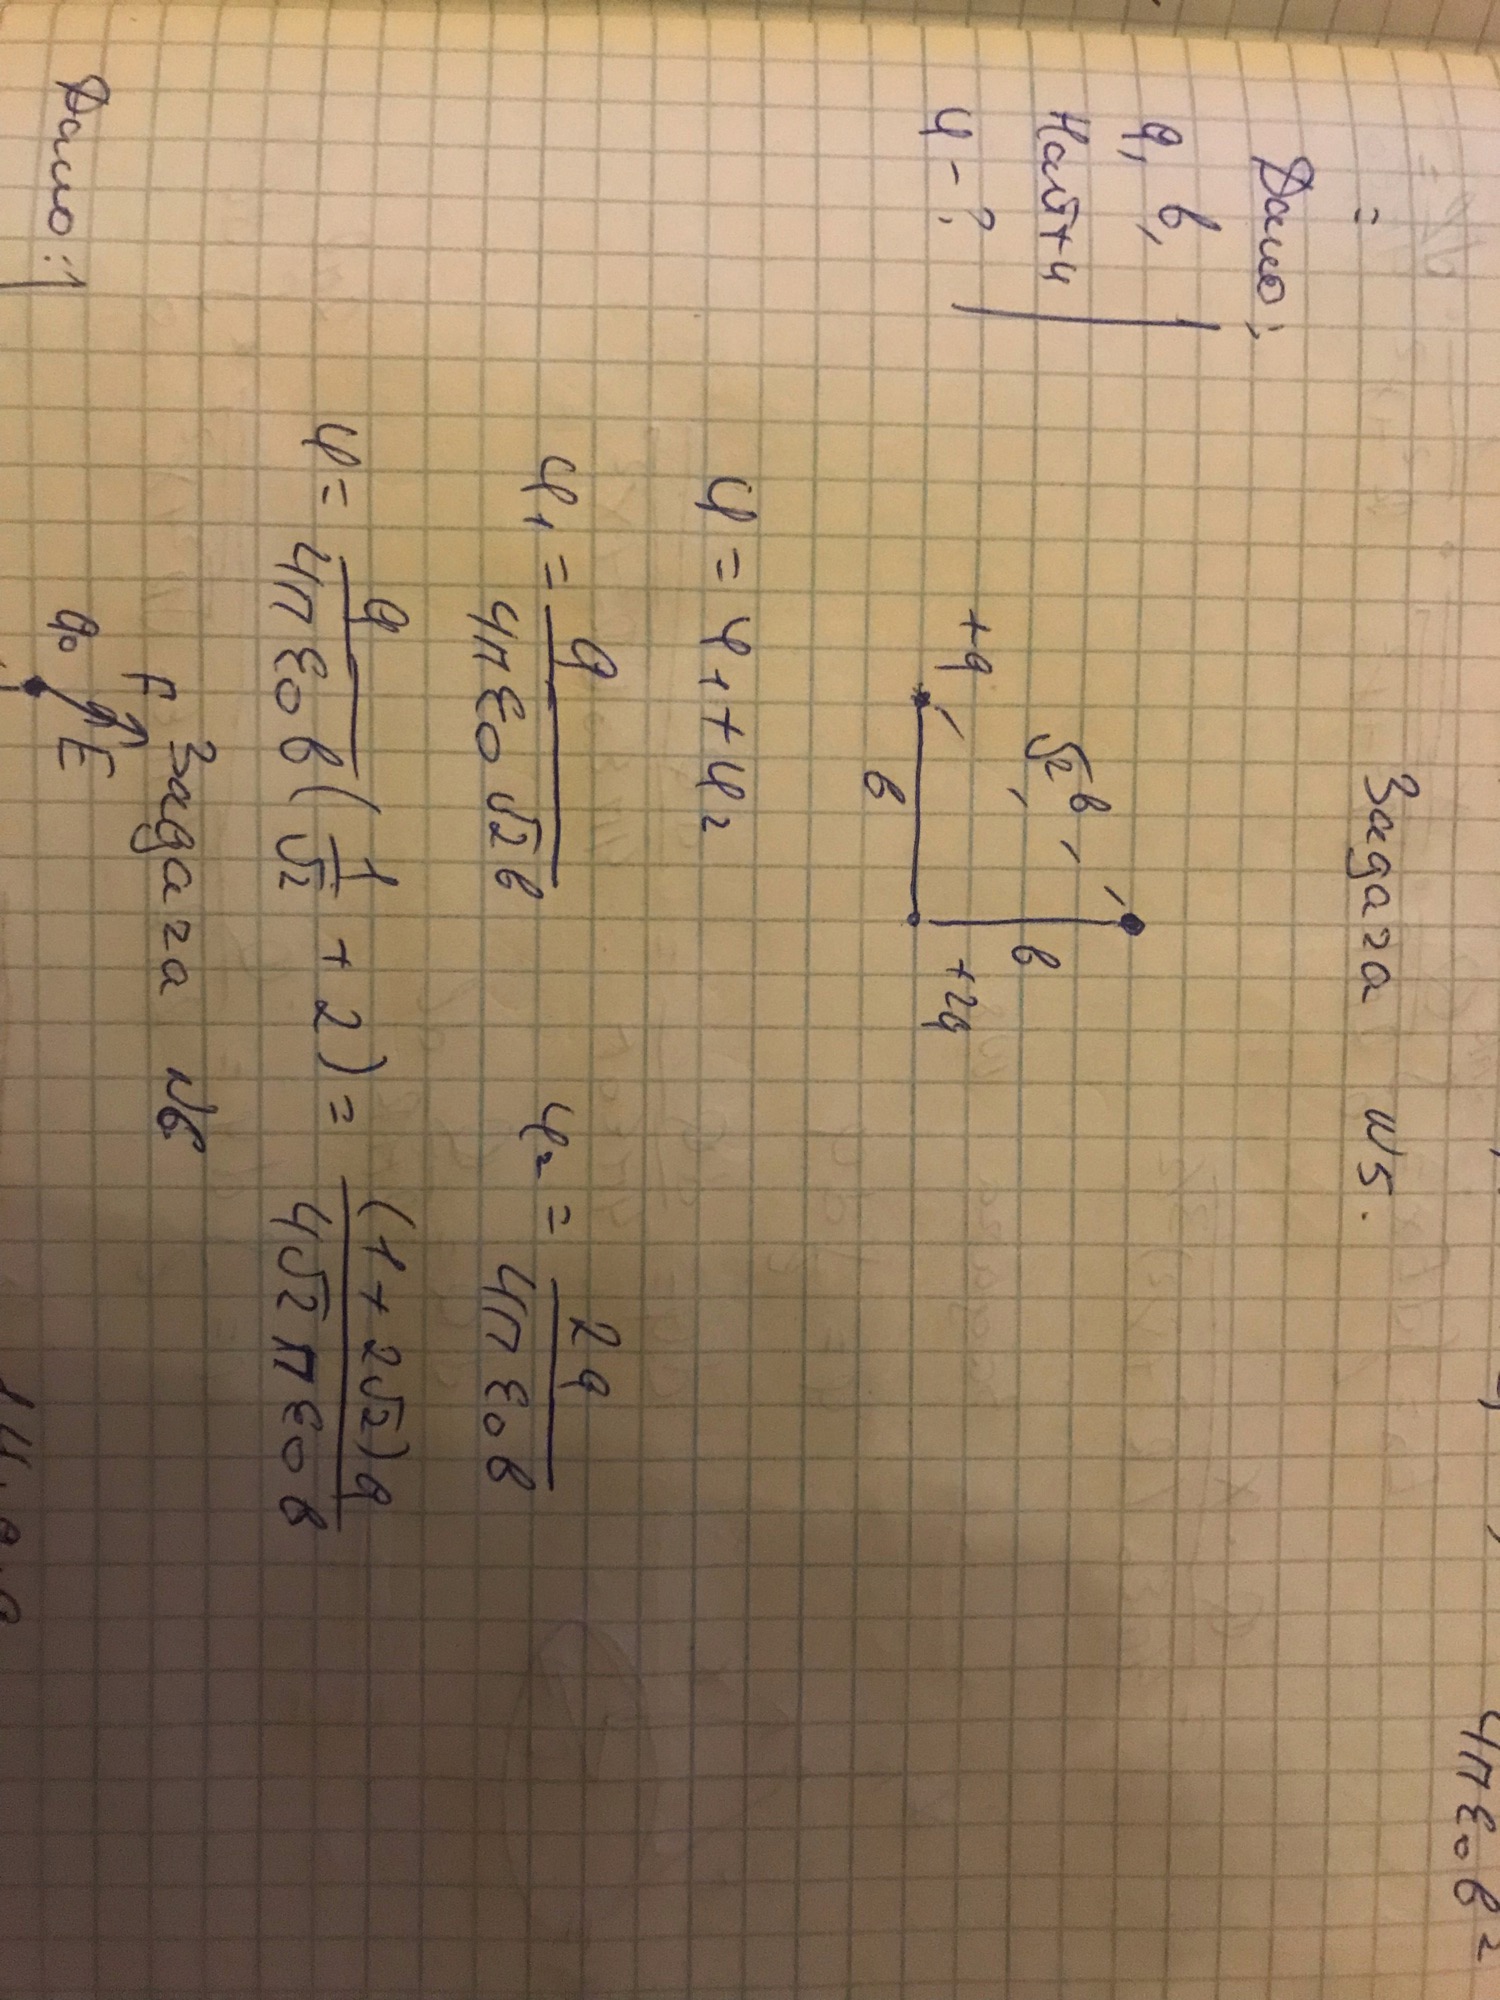 4π ε₀ в²
Задача №5.
=
Дано:
q, в,
Найти
φ - ?
√2 в
в
+q
+2q
в
φ = φ₁ + φ₂
φ₁ = q / (4π ε₀ √2 в)   φ₂ = 2q / (4π ε₀ в)
φ = q / (4π ε₀ в) (1/√2 + 2) = (1 + 2√2) q / (4√2 π ε₀ в)
Задача №6
F
q₀ E
Дано: